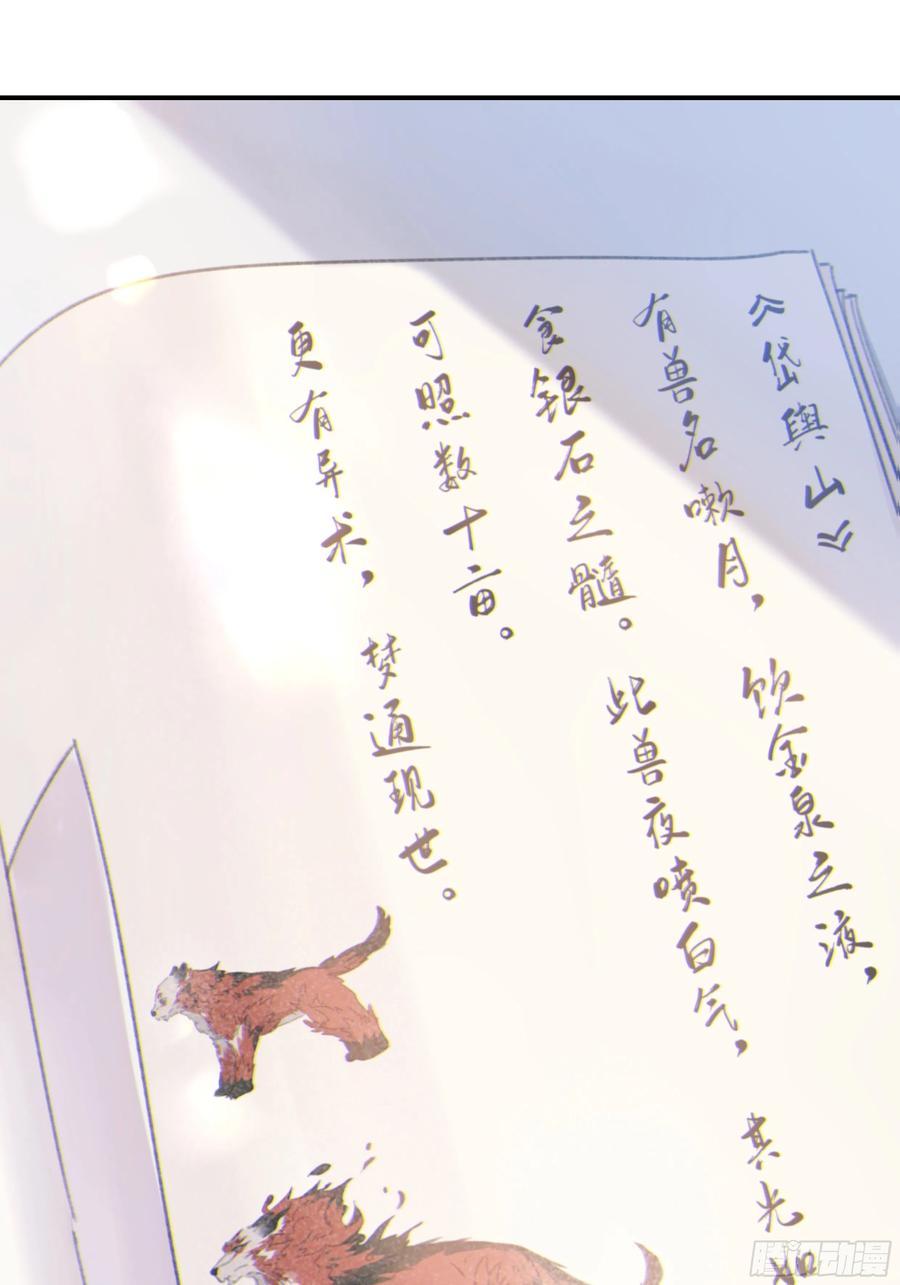 《岱與山》
有兽名嗽月，饮金泉之液，
食银石之髓。此兽夜喷白气，其光如
可照数十亩。
更有异术，梦通现世。
腾讯动漫